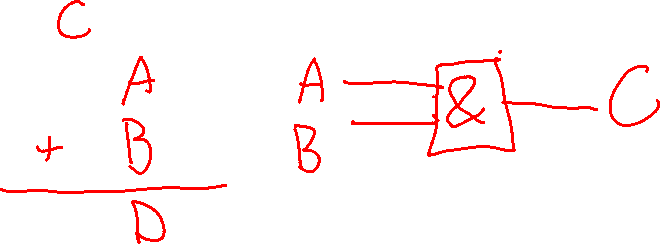 C
A
+ B
D
A
B
&
C